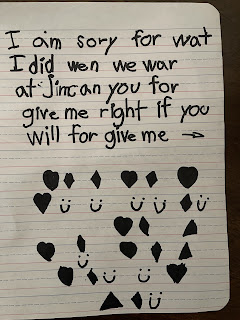 I am sory for wat
I did wen we war
at Jim can you for
give me right if you
will for give me →